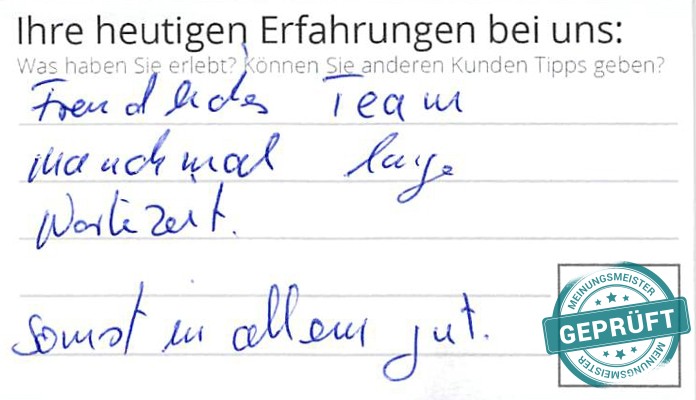 Ihre heutigen Erfahrungen bei uns:
Was haben Sie erlebt? Können Sie anderen Kunden Tipps geben?
Freundliches Team
manchmal lange
Wartezeit.
sonst in allem gut.
MEINUNGSMEISTER
GEPRÜFT
MEINUNGSMEISTER